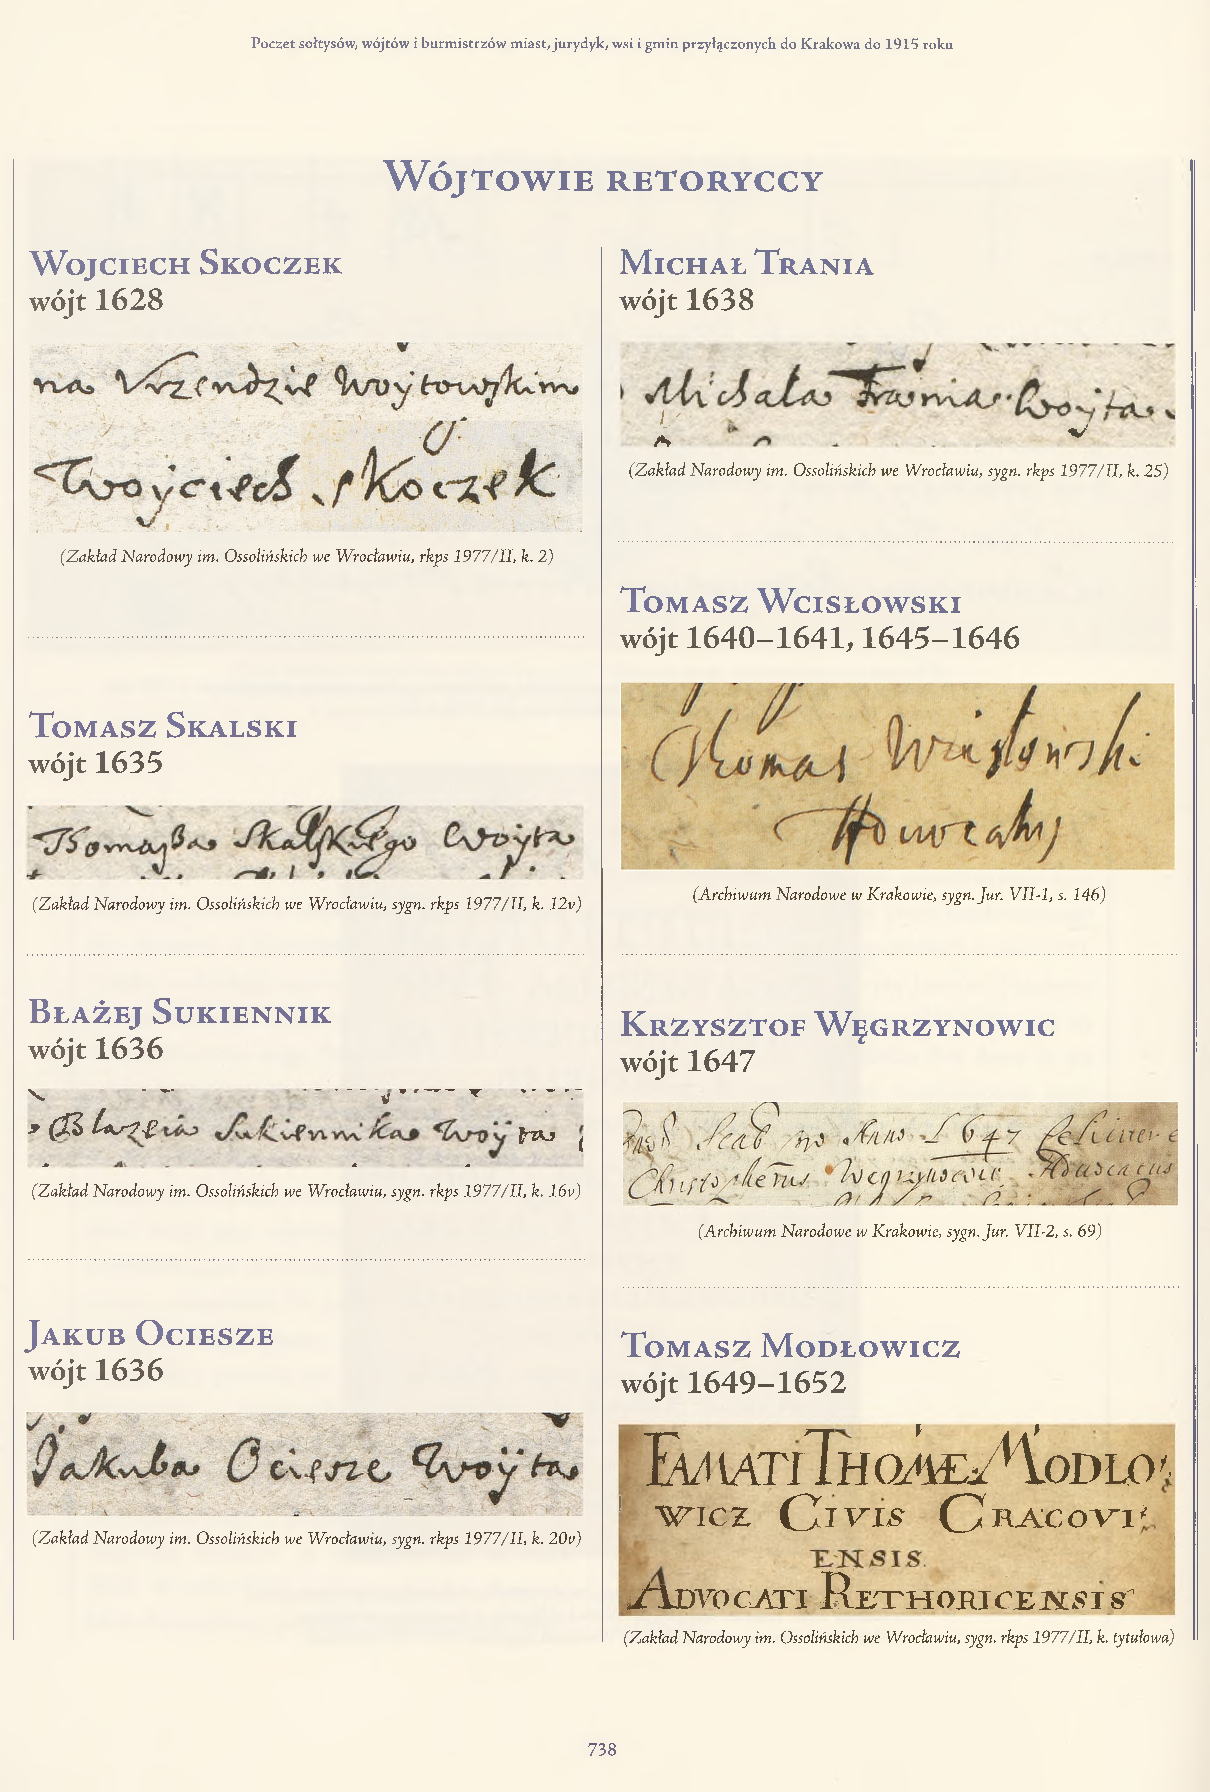 Poczet sołtysów, wójtów i burmistrzów miast, jurydyk, wsi i gmin przyłączonych do Krakowa do 1915 roku
Wójtowie retoryccy
Wojciech Skoczek
wójt 1628
na Vrzendzie Woÿtowskim
Woyciech Skoczek
(Zakład Narodowy im. Ossolińskich we Wrocławiu, rkps 1977/II, k. 2)
Tomasz Skalski
wójt 1635
Thomasza Skalskiego Woÿta
(Zakład Narodowy im. Ossolińskich we Wrocławiu, sygn. rkps 1977/II, k. 12v)
Błażej Sukiennik
wójt 1636
Blazeia Sukiennika Woÿta
(Zakład Narodowy im. Ossolińskich we Wrocławiu, sygn. rkps 1977/II, k. 16v)
Jakub Ociesze
wójt 1636
Jakuba Ociesze Woÿta
(Zakład Narodowy im. Ossolińskich we Wrocławiu, sygn. rkps 1977/II, k. 20v)
Michał Trania
wójt 1638
Michala Trania Woÿta
(Zakład Narodowy im. Ossolińskich we Wrocławiu, sygn. rkps 1977/II, k. 25)
Tomasz Wcisłowski
wójt 1640–1641, 1645–1646
Thomas Wcislowski
(Archiwum Narodowe w Krakowie, sygn. Jur. VII-1, s. 146)
Krzysztof Węgrzynowic
wójt 1647
Anno 1647
Christopherus Wegrzynowic Advocatus
(Archiwum Narodowe w Krakowie, sygn. Jur. VII-2, s. 69)
Tomasz Modłowicz
wójt 1649–1652
FAMATI THOMÆ MODLO
WICZ CIVIS CRACOVI
ENSIS
ADVOCATI RETHORICENSIS
(Zakład Narodowy im. Ossolińskich we Wrocławiu, sygn. rkps 1977/II, k. tytułowa)
738